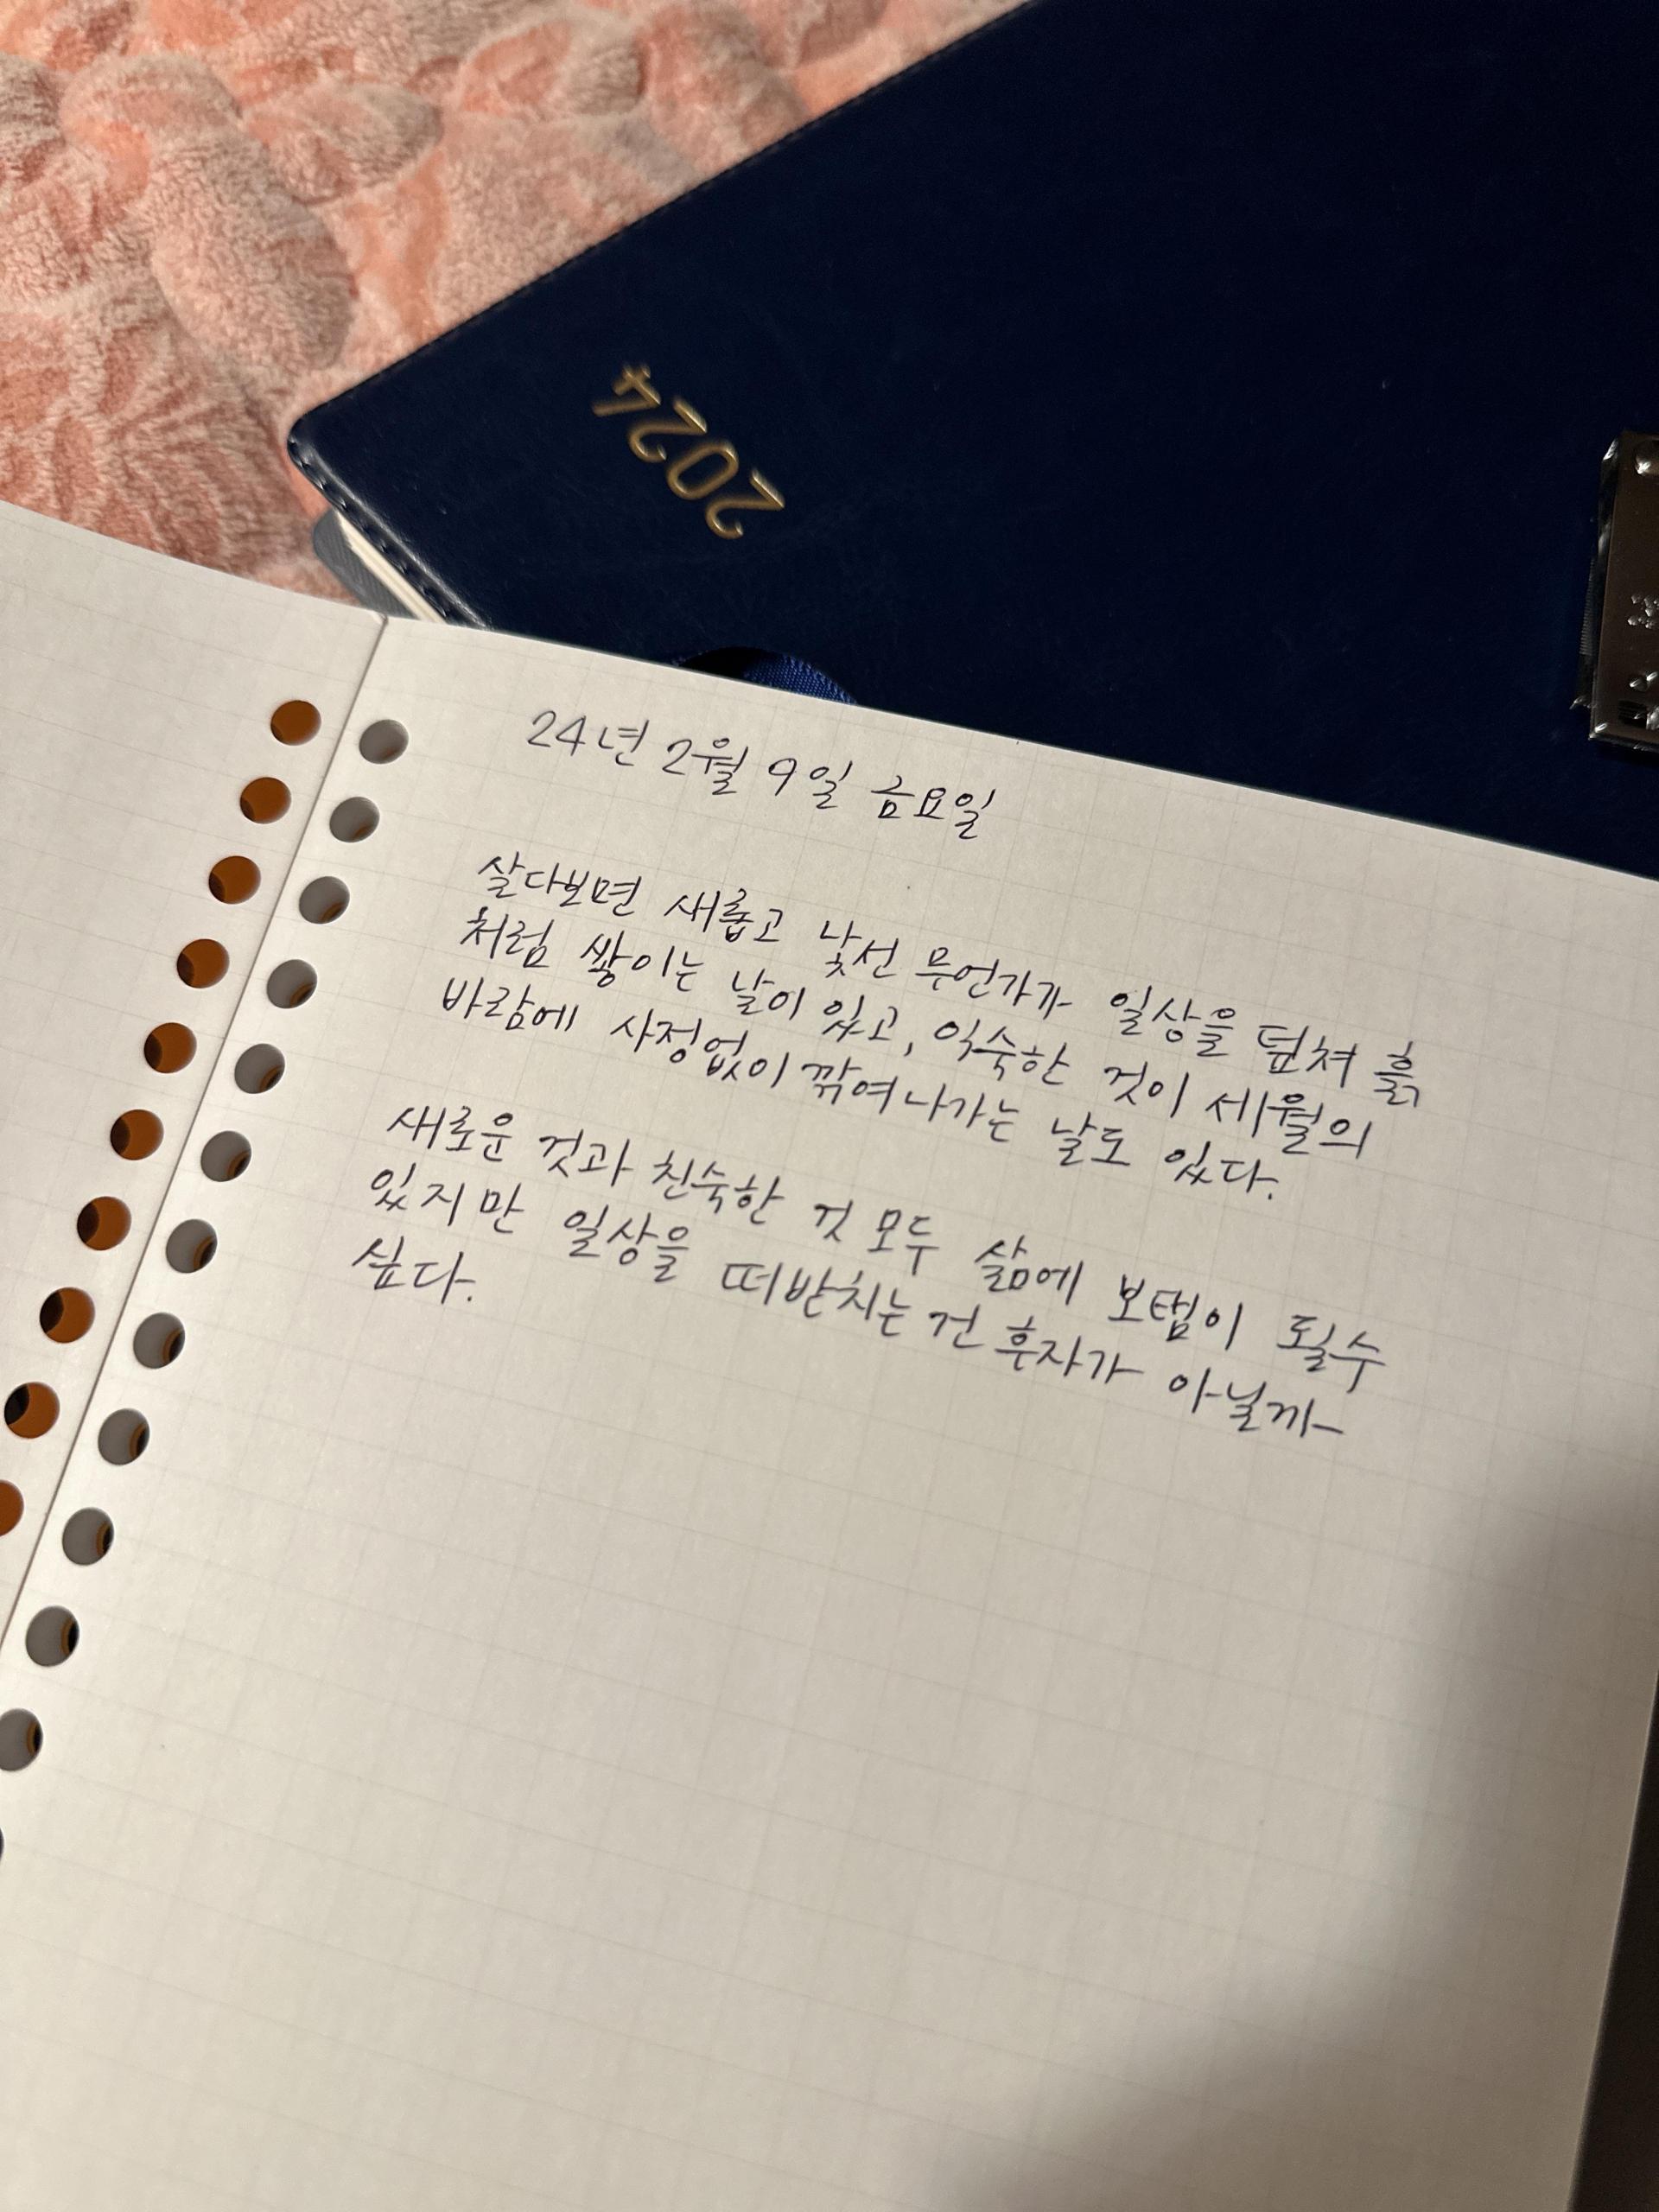 2024
24년 2월 9일 금요일
살다보면 새롭고 낯선 무언가가 일상을 덮쳐 흙
처럼 쌓이는 날이 있고, 익숙한 것이 세월의
바람에 사정없이 깎여나가는 날도 있다.
새로운 것과 친숙한 것 모두 삶에 보탬이 될수
있지만 일상을 떠받치는 건 후자가 아닐까
싶다.